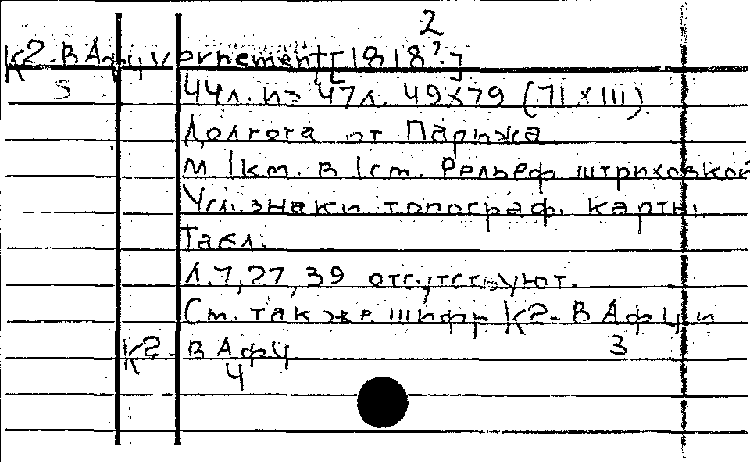 2
К2-В Афц vernement [1818?]
5
44л. из 47л. 49х79 (71х111)
Долгота от Парижа
М 1км. в 1см. Рельеф штриховкой
Усл. знаки топограф. карты.
Табл.
Л. 7, 27, 39 отсутствуют.
См. также шифр К2-В Афц и
3
К2-В Афц
4